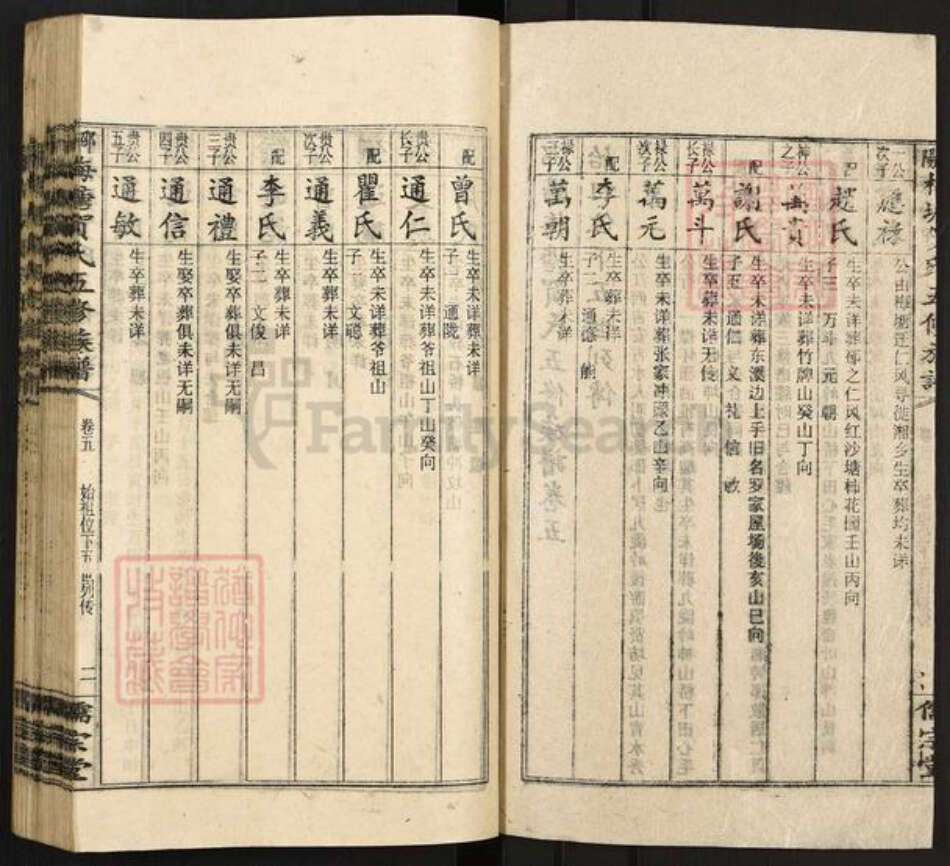 次子
公由梅塘迁仁风寻徙湘乡生卒葬均未详
赵氏
生卒未详葬郴之仁风红沙塘柿花园壬山丙向
子三 万斗 元 朝
之子
万贵
生卒未详葬竹牌山癸山丁向
配
谢氏
生卒未详葬东濠边上手旧名罗家屋场後亥山巳向
子五 通仁 义 礼 信 敏
禄公
长子
萬斗
生卒葬未详无传
禄公
次子
萬元
生卒未详葬张家冲 乙山辛向
配
李氏
生卒葬未详
子二 通德 能
禄公
三子
萬朝
生卒葬未详
配
曾氏
生卒未详葬未详
子一 通陇
贵公
长子
通仁
生卒未详葬爷祖山丁山癸向
配
瞿氏
生卒未详葬爷祖山
子一 文聪
贵公
次子
通義
生卒葬未详
配
李氏
生卒葬未详
子二 文俊 昌
贵公
三子
通禮
生娶卒葬俱未详无嗣
贵公
四子
通信
生娶卒葬俱未详无嗣
贵公
五子
通敏
生卒葬未详
梅塘贺氏五修族譜
卷五
始祖位下五 世列传
二
儒宗堂
FamilySearch